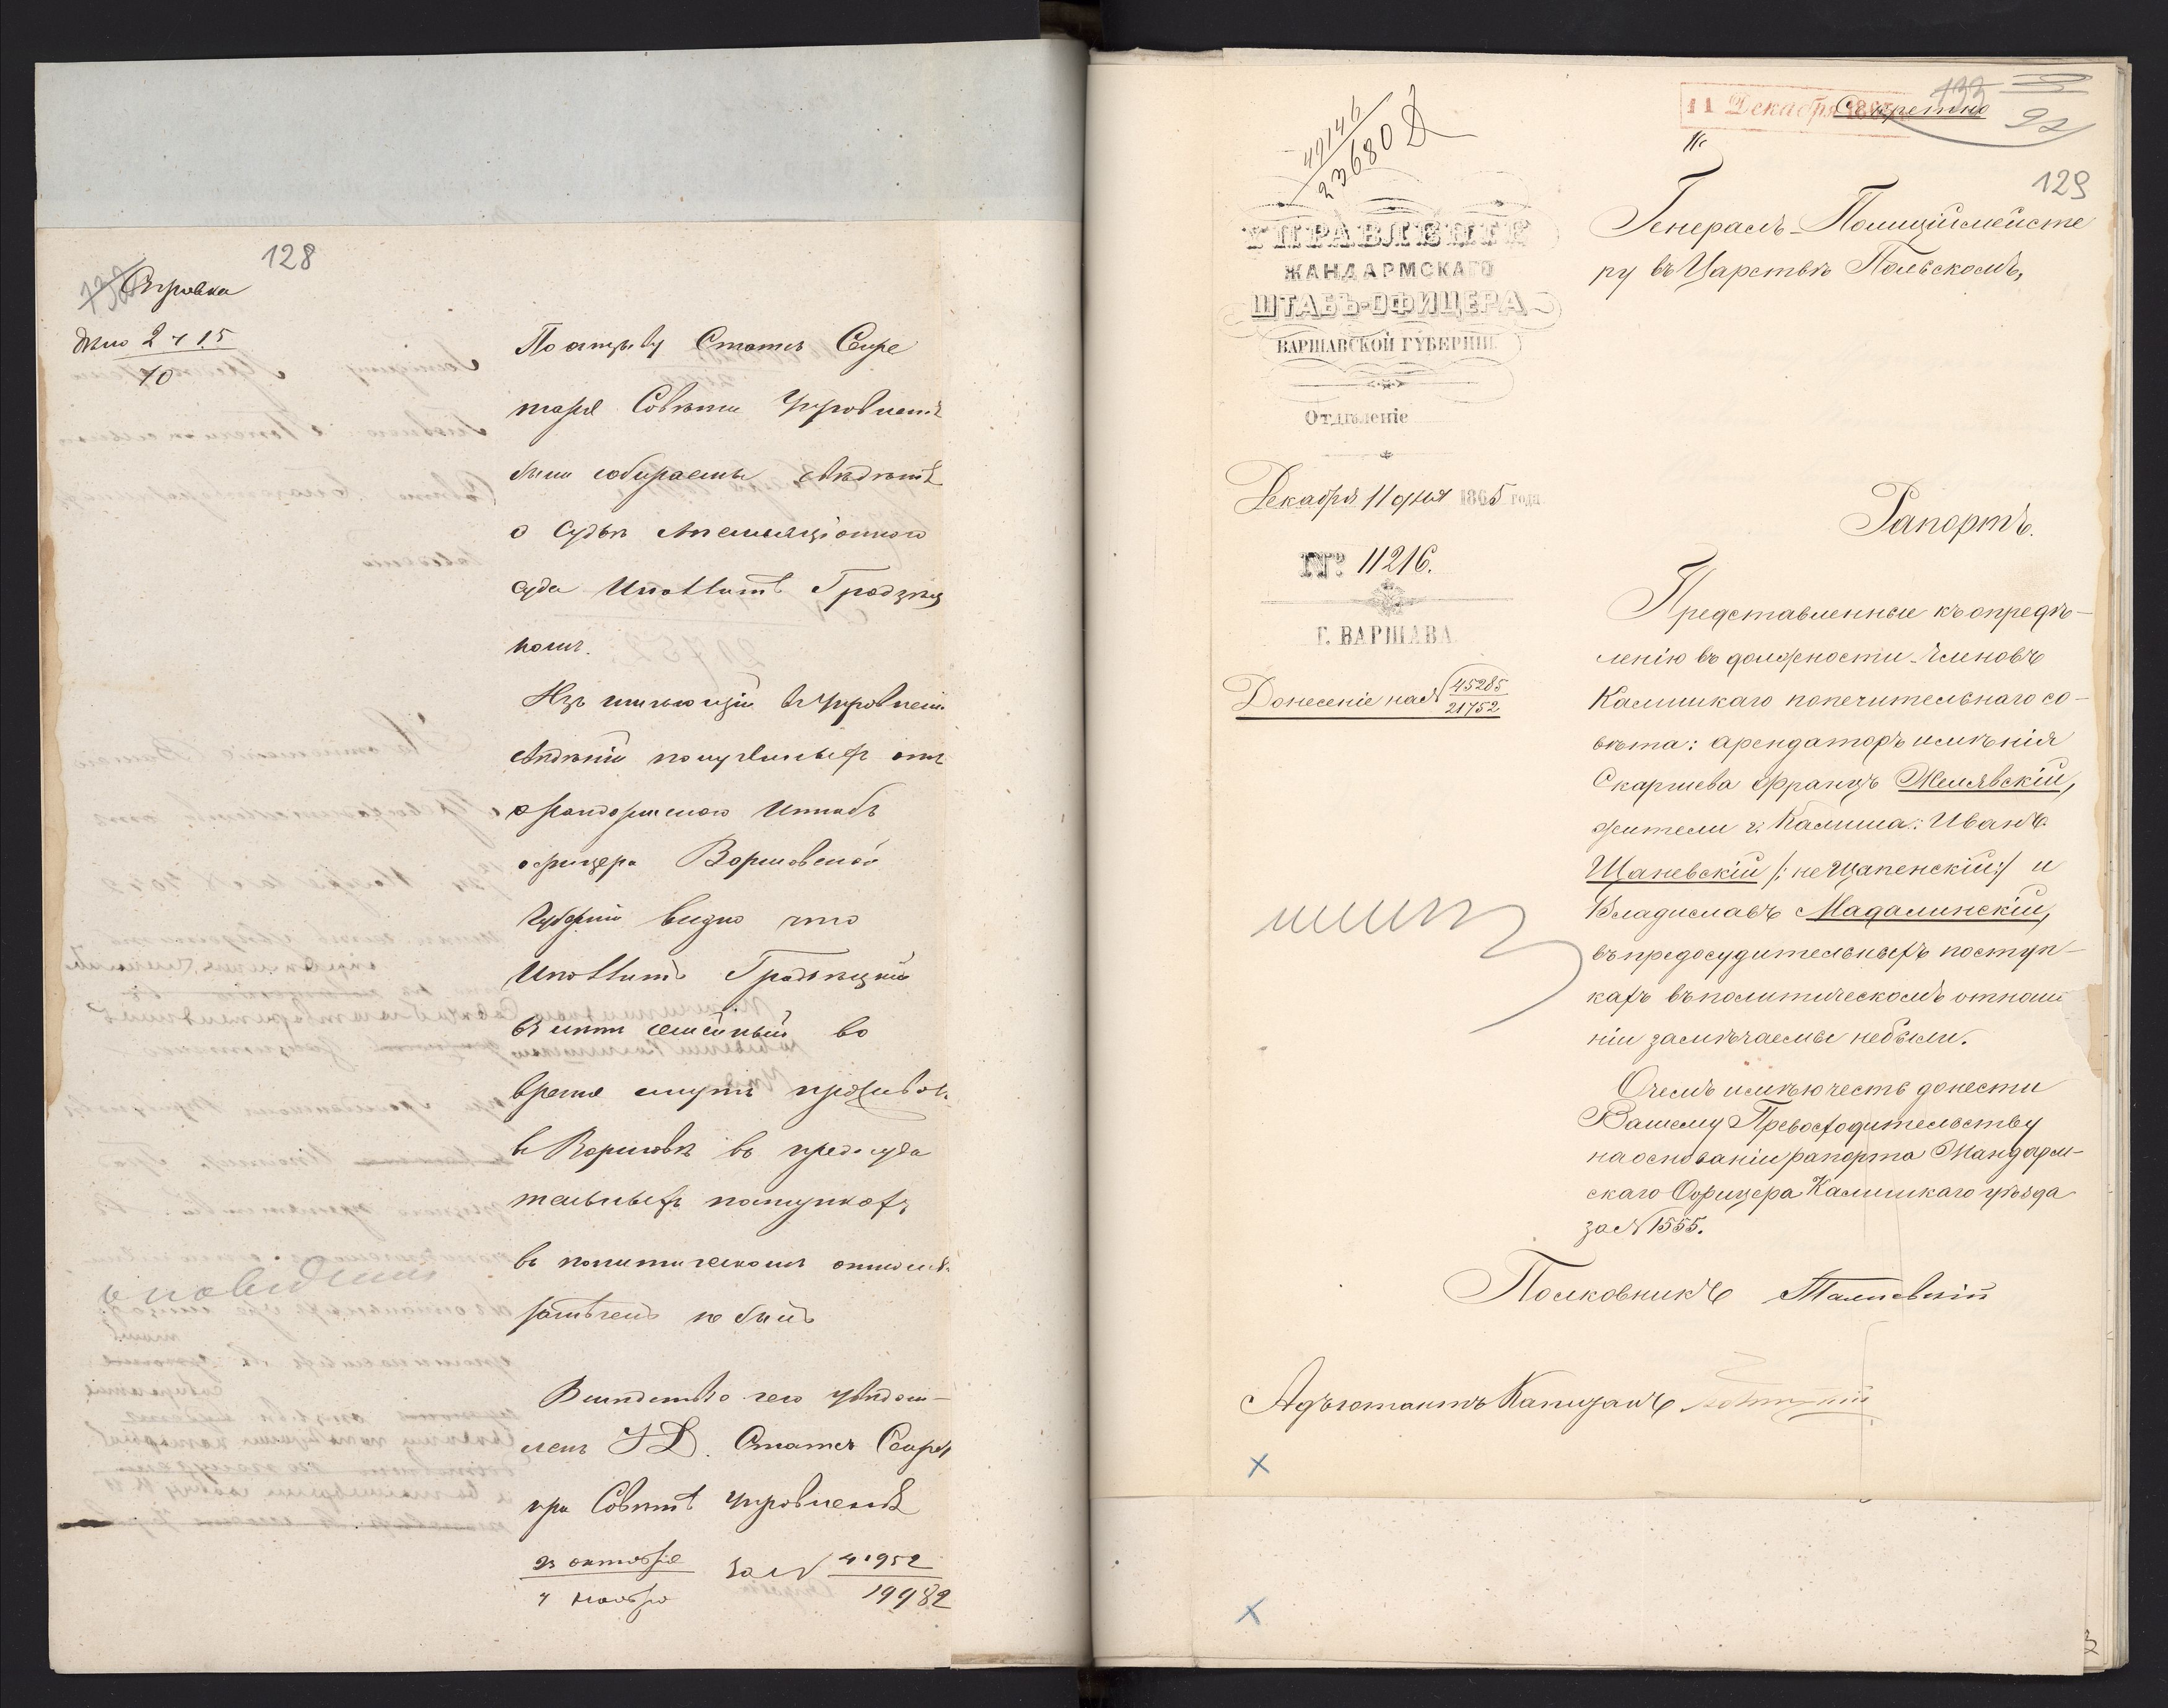 128
Справка
Дѣло 2 ч 15
10
По отзыву Статсъ Секре
таря Совѣта Управленія
были собираемы свѣдѣнія
о Судьѣ Апелляціоннаго
суда Ипполитѣ Гродзиц
комъ.
Изъ имѣющихся въ Управленіи
свѣдѣній полученныхъ отъ
жандармскаго Штабъ
офицера Варшавской
Губерніи видно что
Ипполитъ Гродзицкій
во
время смутъ проживая
въ Варшавѣ въ предосуди
тельныхъ поступкахъ
въ политическомъ отношеніи
замѣченъ не былъ
Вслѣдствіе чего увѣдом-
ленъ Статсъ Секрет
при Совѣтѣ Управленія
23 октября
4 ноября
за № 41952
19982
о поведеніи
49146
23680
11 Декабря 1865
Секретно
133
92
129
Генералъ-Полиціймейсте
ру въ Царствѣ Польскомъ,
УПРАВЛЕНІЕ
ЖАНДАРМСКАГО
ШТАБЪ-ОФИЦЕРА
ВАРШАВСКОЙ ГУБЕРНІИ
Отдѣленіе
Декабря 11 дня 1865 года
№ 11216.
Г. ВАРШАВА
Донесеніе на № 45285
21752
Рапортъ.
Представленные къ опредѣ-
ленію въ должности членовъ
Калишкаго попечительнаго со-
вѣта: арендаторъ имѣнія
Скаршева Францъ Желявскій,
жители г. Калиша: Иванъ
Щаневскій /: не Щапенскій:/ и
Владиславъ Мадалинскій,
въ предосудительныхъ поступ-
кахъ въ политическомъ отноше
ніи замѣчаемы не были.
О чемъ имѣю честь донести
Вашему Превосходительству
на основаніи рапорта Жандарм-
скаго Офицера Калишкаго уѣзда
за № 1555.
Полковникъ
Адъютантъ Капитанъ